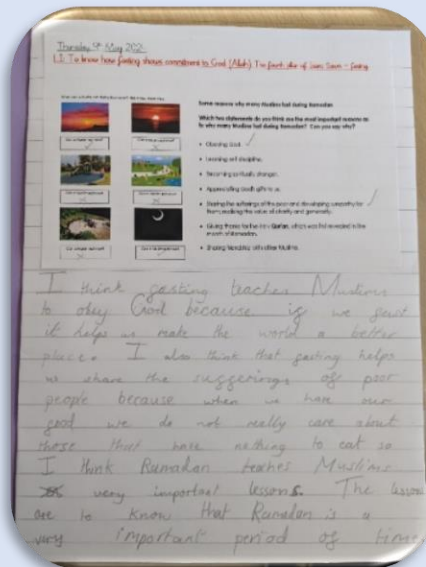 Thursday 9th May 202
L.I: To know how fasting shows commitment to God (Allah). The fourth pillar of Islam: Sawm - fasting
Some reasons why many Muslims fast during Ramadan
Which two statements do you think are the most important reasons as
to why many Muslims fast during Ramadan? Can you say why?
• Obeying God.
• Learning self discipline.
• Becoming spiritually stronger.
• Appreciating God's gifts to us.
• Sharing the sufferings of the poor and developing sympathy for
them; realising the value of charity and generosity.
• Giving thanks for the Holy Qur'an, which was first revealed in the
month of Ramadan.
• Sharing friendship with other Muslims.
I think fasting teaches Muslims
to obey God because if we fast
it helps us make the world a better
place. I also think that fasting helps
us share the sufferings of poor
people because when we have our
food we do not really care about
those that have nothing to eat so
I think Ramadan teaches Muslims
very important lessons. The lessons
are to know that Ramadan is a
very important period of time.